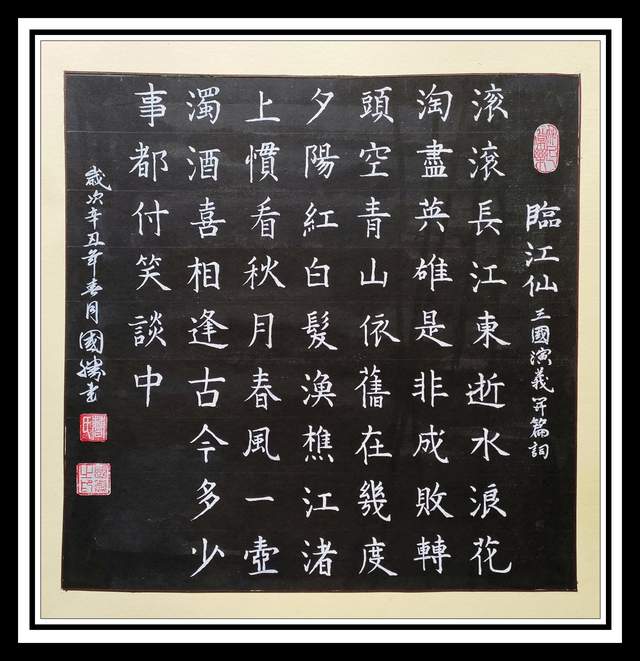 臨江仙 三國演義开篇詞
滚滚長江東逝水浪花
淘盡英雄是非成敗轉
頭空青山依舊在幾度
夕陽紅白髮漁樵江渚
上慣看秋月春風一壺
濁酒喜相逢古今多少
事都付笑談中
歲次辛丑年春月國勝書